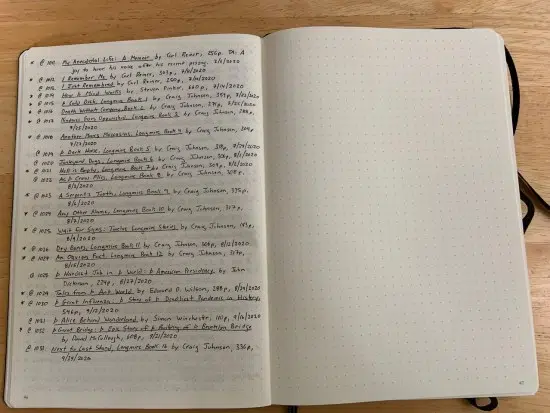 * @ 1011 My Anecdotal Life: A Memoir by Carl Reiner, 256p. DA: A
joy to hear his voice after his recent passing. 7/8/2020
* @ 1012 I Remember Me by Carl Reiner, 303p,
@ 1013 I Just Remembered by Carl Reiner, 250p,
@ 1014 How Mind Works by Steven Pinker, 660p,
* @ 1015 A Cold Dish, Longmire Book 1 by Craig Johnson,
* @ 1016 Death Without Company, Book 2, by Craig Johnson,
* @ 1017 Kindness Goes Unpunished, Longmire Book 3, by Craig Johnson, 288p,
7/25/2020
* @ 1018 Another Man's Moccasins, Longmire Book 4 by Craig Johnson,
7/27/2020
@ 1019 Dark Horse, Longmire Book 5 by Craig Johnson,
@ 1020 Junkyard Dogs, Longmire Book 6 by Craig Johnson,
* @ 1021 Hell is Empty, Longmire Book 7 by Craig Johnson,
@ 1022 As Crow Flies, Longmire Book 8 by Craig Johnson, 308p,
8/5/2020
* @ 1023 A Serpent's Tooth, Longmire Book 9 by Craig Johnson,
8/6/2020
* @ 1024 Any Other Name, Longmire Book 10 by Craig Johnson, 317p,
8/7/2020
* @ 1025 Wait for Signs: Twelve Longmire Stories, by Craig Johnson,
8/9/2020
* @ 1026 Dry Bones, Longmire Book 11 by Craig Johnson, 8/12/2020
* @ 1027 An Obvious Fact, Longmire Book 12 by Craig Johnson, 317p,
8/15/2020
@ 1028 Hardest Job in World: American Presidency, by John
Dickerson, 8/27/2020
* @ 1029 Tales from Ant World, by Edward O. Wilson,
* @ 1030 Great Influenza: Story of Deadliest Pandemic in History,
546p, 9/12/2020
@ 1031 Alice Behind Wonderland by Simon Winchester, 110p,
* @ 1032 Great Bridge: Epic Story of Building of Brooklyn Bridge
by David McCullough, 608p, 9/21/2020
@ 1033 Next to Last Stand, Longmire Book 16 by Craig Johnson, 336p,
9/29/2020